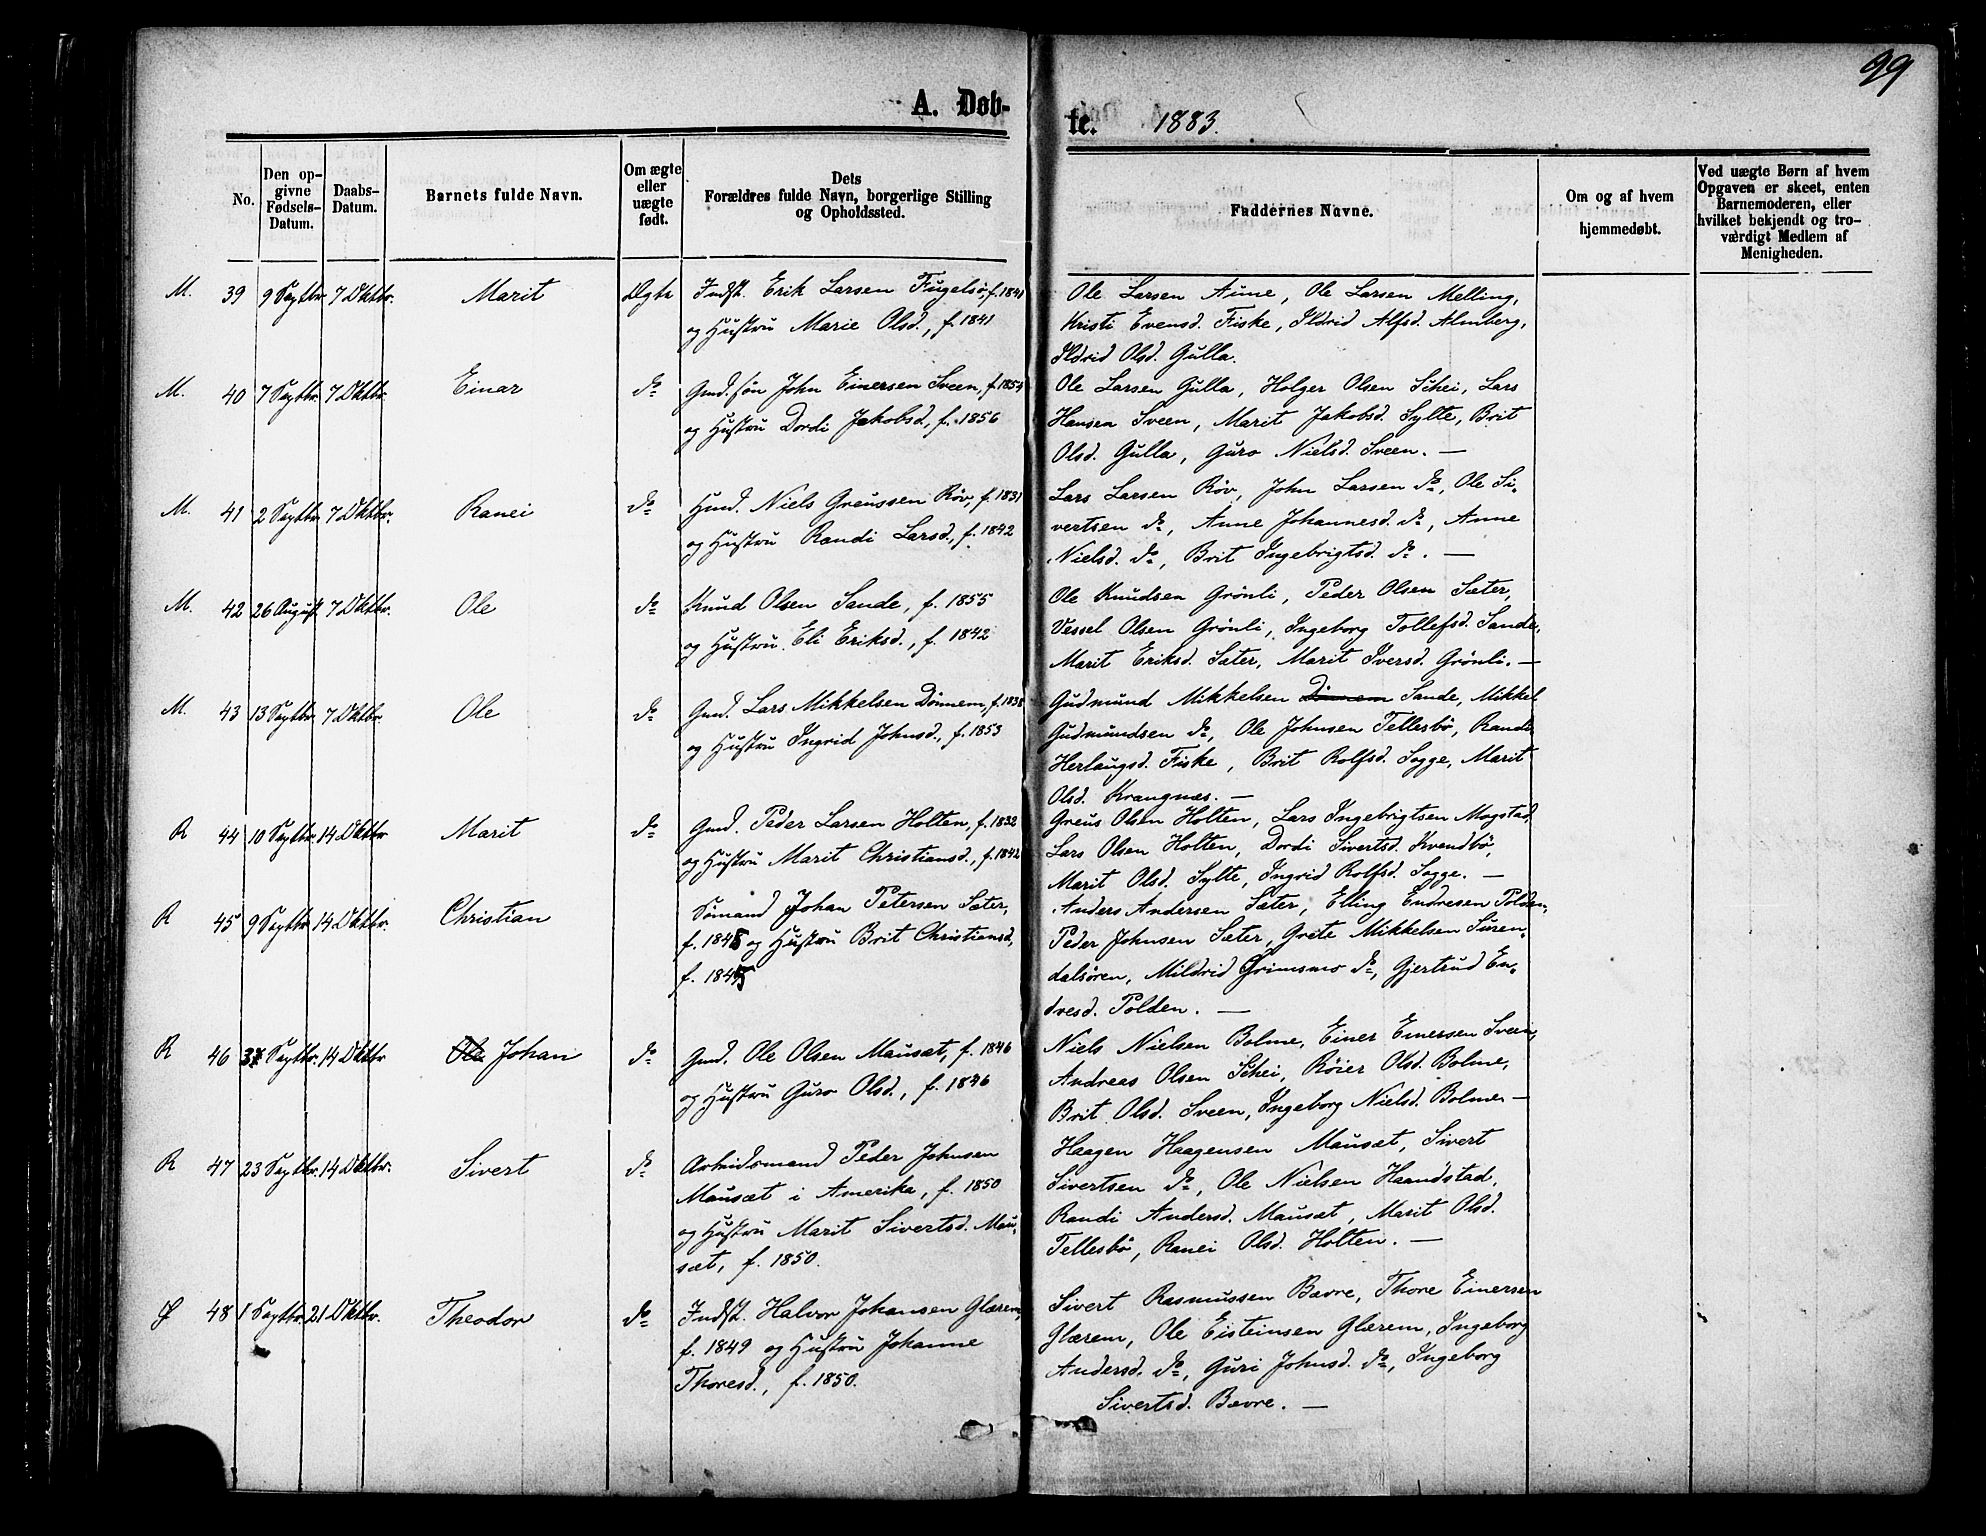 99
A. Døb-
te. 1883.
No.
Den op-
givne
Fødsels-
Datum.
Daabs-
Datum.
Barnets fulde Navn.
Om ægte
eller
uægte
født.
Dets
Forældres fulde Navn, borgerlige Stilling
og Opholdssted.
Faddernes Navne.
Om og af hvem
hjemmedøbt.
Ved uægte Børn af hvem
Opgaven er skeet, enten
Barnemoderen, eller
hvilket bekjendt og tro-
værdigt Medlem af
Menigheden.
M. 39 9 Septbr. 7 Oktbr. Marit Ægte Indst. Erik Larsen Fugelsø, f. 1841
og Hustru Marie Olsd., f. 1841
Ole Larsen Aune, Ole Larsen Melling,
Kristi Evensd. Fiske, Ildrid Alfsd. Almberg,
Ildrid Olsd. Gulla.
M. 40 7 Septbr. 7 Oktbr. Einar do Gmd.søn John Einersen Sveen, f. 1854
og Hustru Dordi Jakobsd., f. 1856
Ole Larsen Gulla, Holger Olsen Schei, Lars
Hansen Sveen, Marit Jakobsd. Sylte, Brit
Olsd. Gulla, Guro Nielsd. Sveen. —
M. 41 2 Septbr. 7 Oktbr. Ranei do Husmd. Niels Greussen Røv, f. 1831
og Hustru Randi Larsd., f. 1842
Lars Larsen Røv, John Larsen do, Ole Si-
vertsen do, Anne Johannesd. do, Anne
Nielsd. do, Brit Ingebrigtsd. do. —
M. 42 26 August 7 Oktbr. Ole do Knud Olsen Sande, f. 1855
og Hustru Eli Eriksd., f. 1842
Ole Knudsen Grønli, Peder Olsen Sæter,
Vessel Olsen Grønli, Ingeborg Tollefsd. Sande,
Marit Eriksd. Sæter, Marit Iversd. Grønli. —
M. 43 13 Septbr. 7 Oktbr. Ole do Gmd. Lars Mikkelsen Dønnem, f. 1838
og Hustru Ingrid Johnsd., f. 1853
Gudmund Mikkelsen Sande, Mikkel
Gudmundsen do, Ole Johnsen Tellesbø, Randi
Herlaugsd. Fiske, Brit Rolfsd. Sogge, Marit
Olsd. Krangnæs. —
R 44 10 Septbr. 14 Oktbr. Marit do Gmd. Peder Larsen Holten, f. 1832
og Hustru Marit Christiansd., f. 1842
Greus Olsen Holten, Lars Ingebrigtsen Mogstad,
Lars Olsen Holten, Dordi Sivertsd. Kvendbø,
Marit Olsd. Sylte, Ingrid Rolfsd. Sogge. —
R 45 9 Septbr. 14 Oktbr. Christian Sømand Johan Petersen Sæter,
f. 1848 og Hustru Brit Christiansd.,
f. 1845
Anders Andersen Sæter, Elling Endresen Polden,
Peder Johnsen Sæter, Grete Mikkelsen Suren-
dalsøren, Mildrid Grimsmo do, Gjertrud En-
dresd. Polden. —
R 46 Septbr. 14 Oktbr. Ole Johan do Gmd. Ole Olsen Mausæt, f. 1846
og Hustru Guro Olsd., f. 1846
Niels Nielsen Bolme, Einer Einersen Sveen,
Andreas Olsen Schei, Røier Olsd. Bolme,
Brit Olsd. Sveen, Ingeborg Nielsd. Bolme —
R 47 23 Septbr. 14 Oktbr. Sivert do Arbeidsmand Peder Johnsen
Mausæt i Amerika, f. 1850
og Hustru Marit Sivertsd. Mau-
sæt, f. 1850.
Haagen Haagensen Mausæt, Sivert
Sivertsen do, Ole Nielsen Haandstad,
Randi Andersd. Mausæt, Marit Olsd.
Tellesbø, Ranei Olsd. Holten. —
48 1 Septbr. 21 Oktbr. Theodor do Indst. Halvor Johansen Glærem,
f. 1849 og Hustru Johanne
Thoresd., f. 1850.
Sivert Rasmussen Bævre, Thore Einersen
Glærem, Ole Eisteinsen Glærem, Ingeborg
Andersd. do, Guri Johnsd. do, Ingeborg
Sivertsd. Bævre. —